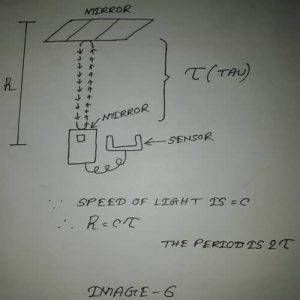 MIRROR
R
τ (TAU)
MIRROR
SENSOR
∵ SPEED OF LIGHT IS = C
∴ R = cτ
THE PERIOD IS 2τ
IMAGE-6